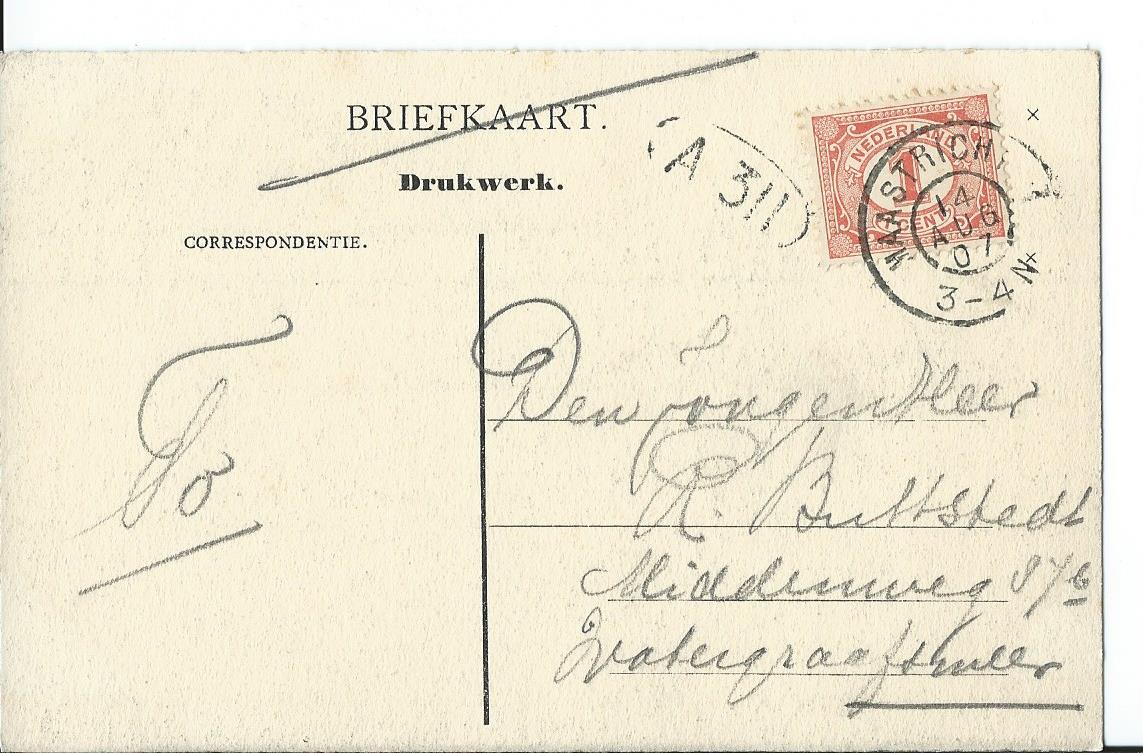 BRIEFKAART.
Drukwerk.
CORRESPONDENTIE.
A 311
NEDERLAND
1
CENT
MAASTRICHT
14
AUG
07
3-4 N
To
Den Jongen Heer
R. Buttstedt
Middenweg 87 b
Watergraafsmeer